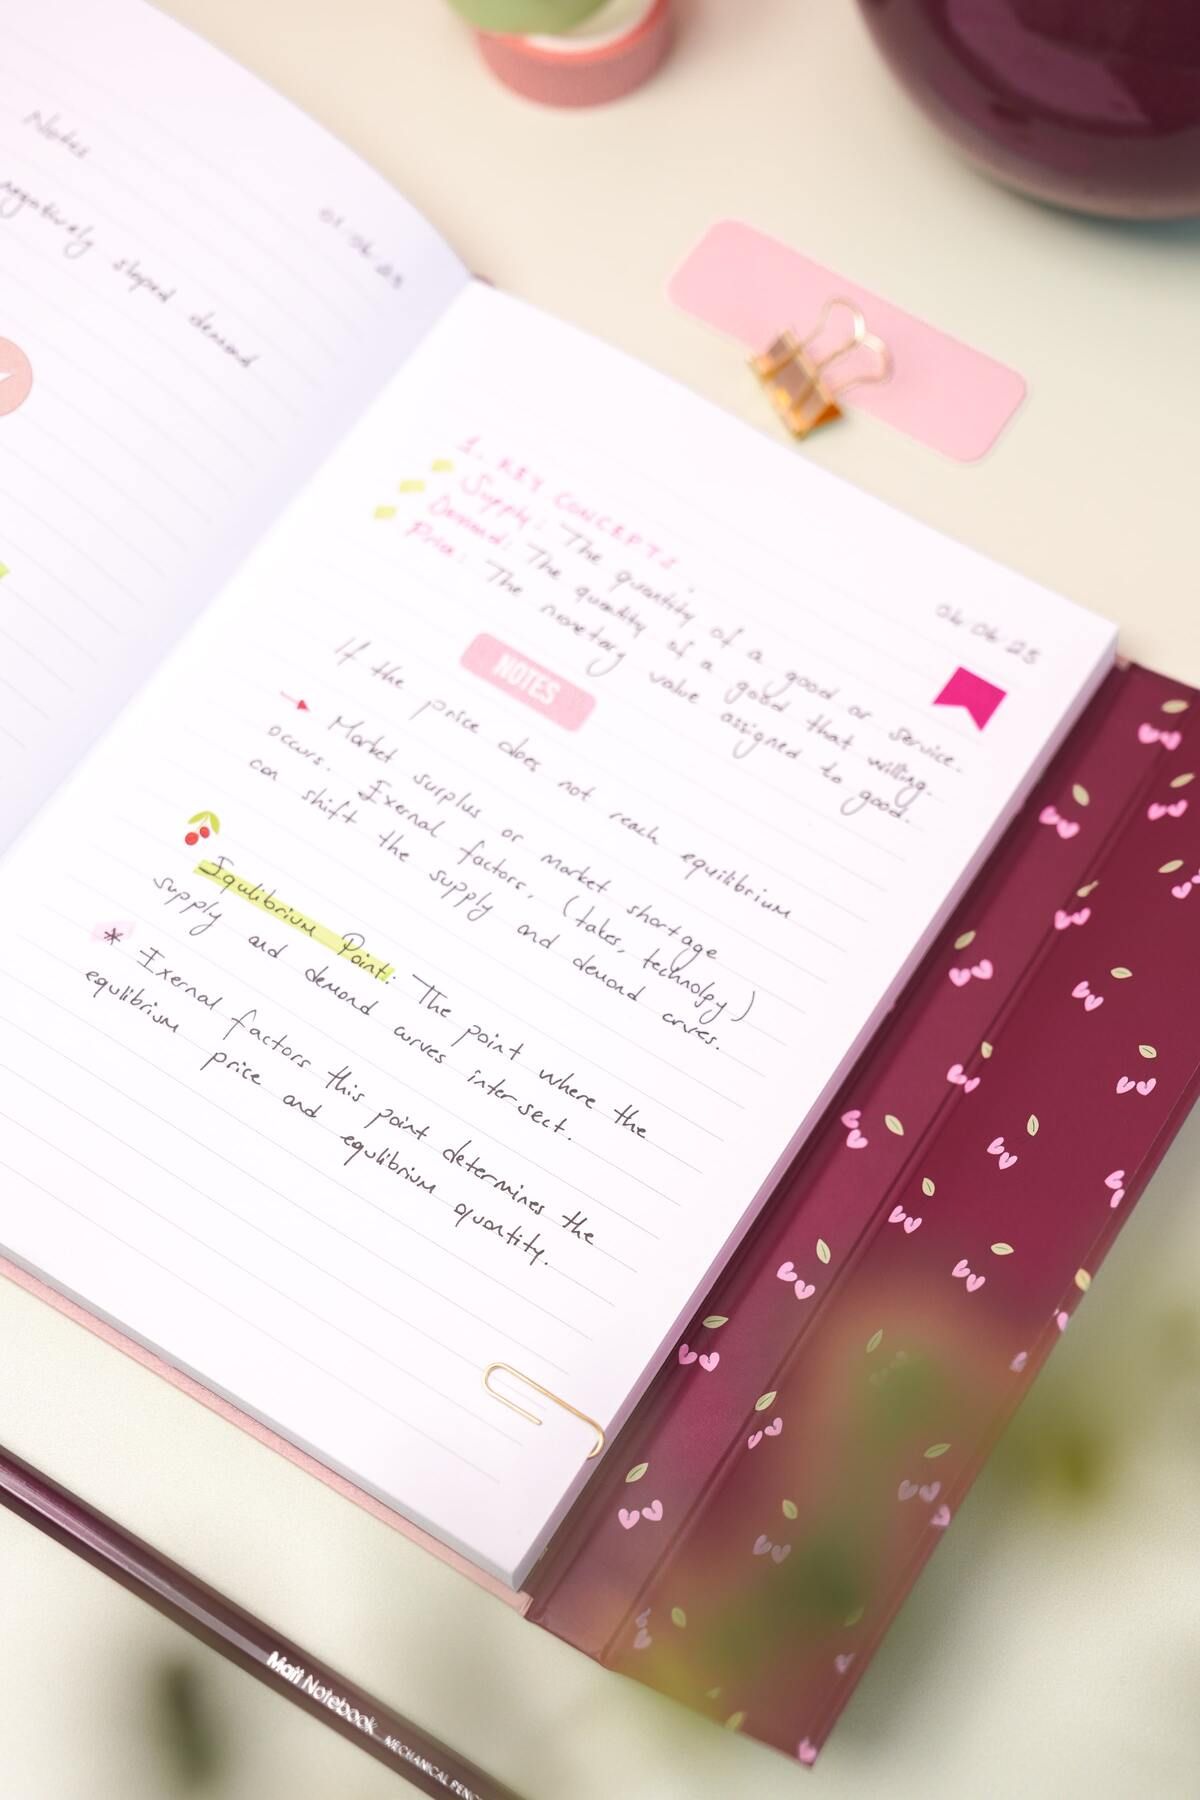 Notes
negatively sloped demand
06 06 25
1. KEY CONCEPTS
Supply: The quantity of a good or service.
Demand: The quantity of a good that willing.
Price: The monetary value assigned to good.
NOTES
If the price does not reach equilibrium
Market surplus or market shortage
occurs. Exernal factors, (takes, technolpy)
can shift the supply and demand cruves.
Equlibrium Point: The point where the
supply and demand curves intersect.
* Exernal factors this point determines the
equlibrium price and equlibrium quantity.
Matt Notebook MECHANICAL